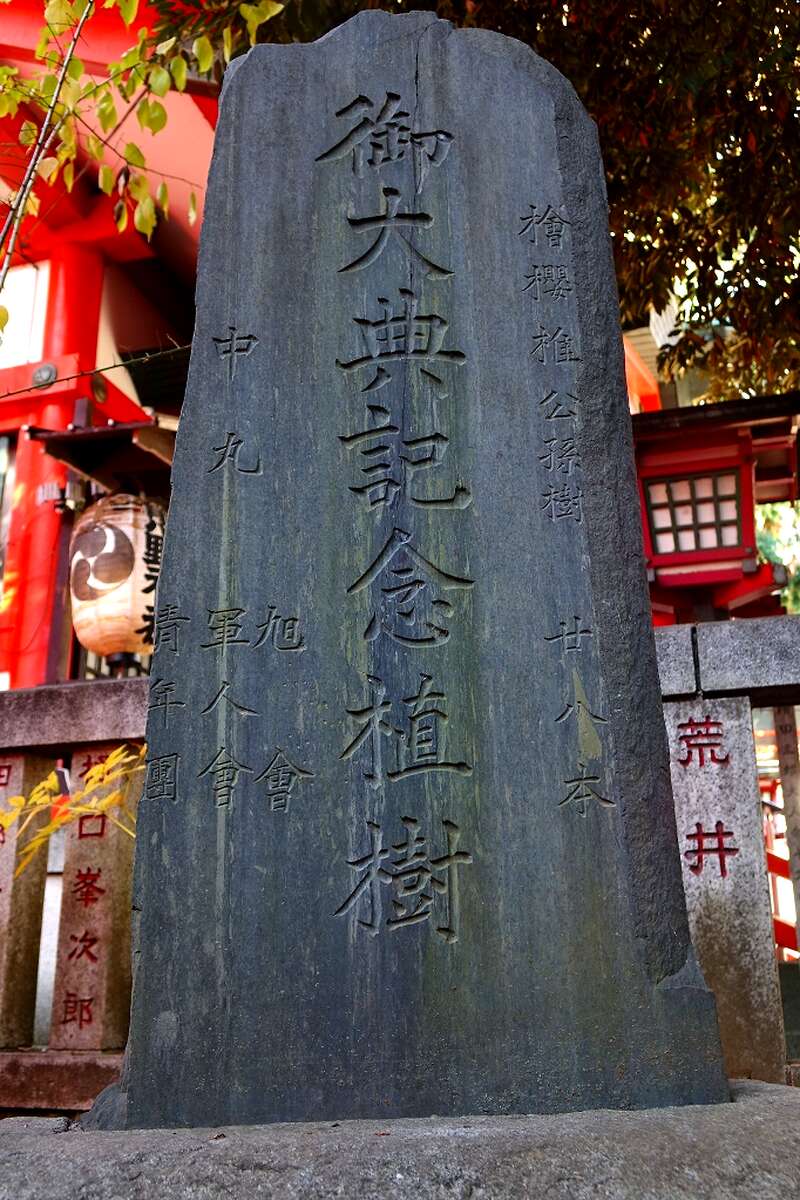 檜櫻椎公孫樹 廿八本
御大典記念植樹
中丸
旭會
軍人會
靑年團
荒井
口峯次郎